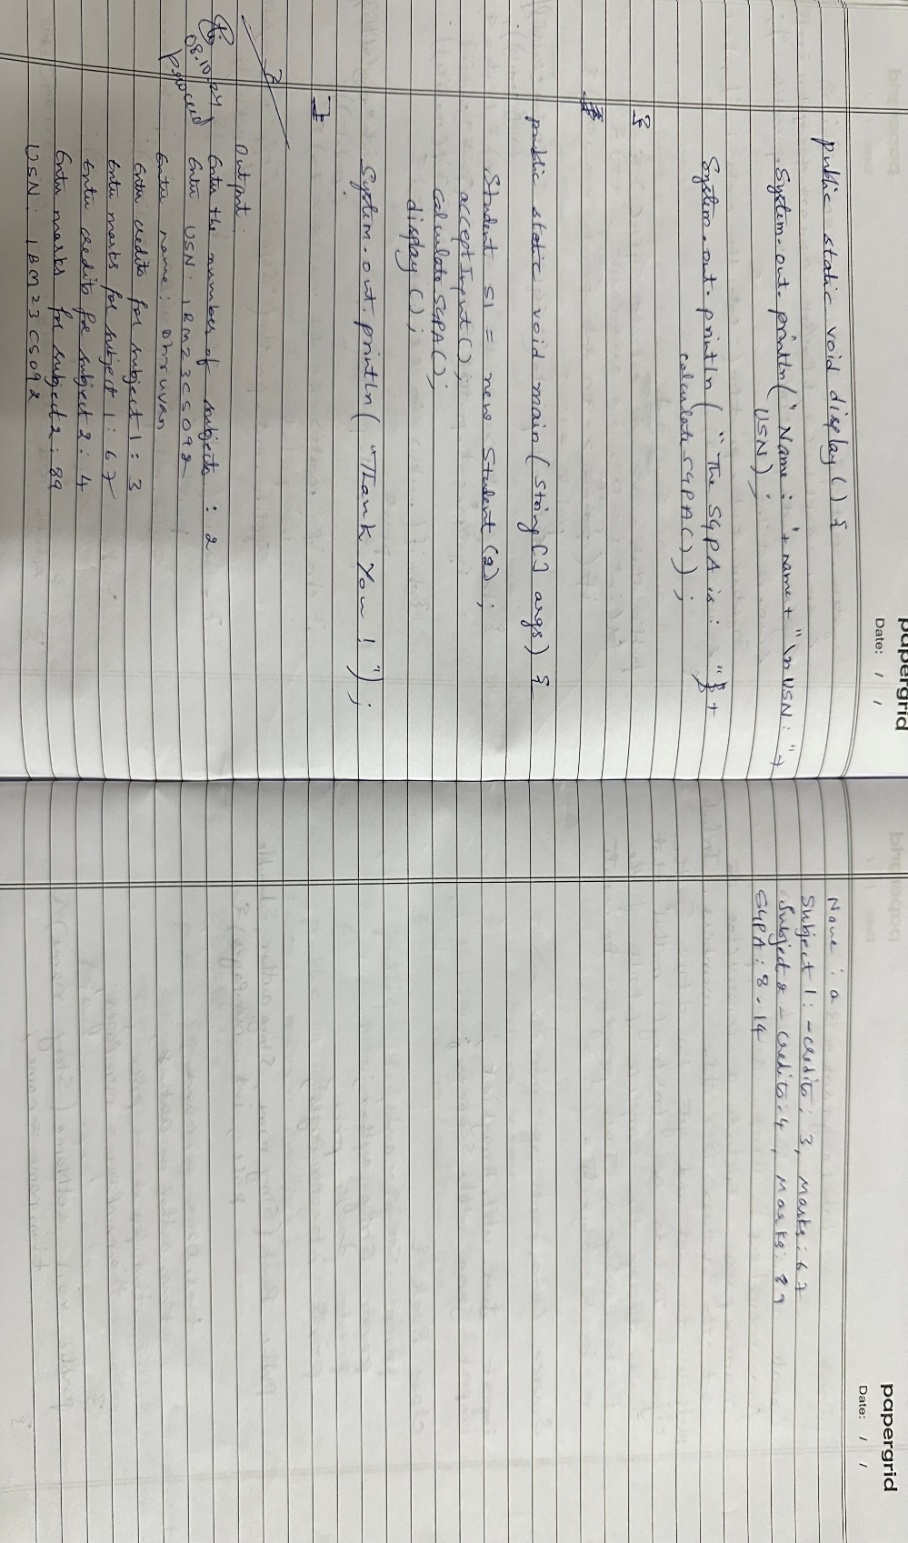 papergrid
Date: / /
public static void display () {
System.out.println("Name: "+ name + "\nUSN: " +
USN);
System.out.println("The SGPA is: " +
calculateSGPA());
}
public static void main (String[] args) {
Student s1 = new Student (2);
acceptInput();
calculateSGPA();
display ();
System.out.println("Thank You!");
}
}
08.10.24
Output:
Enter the number of subjects : 2
Enter USN: 1BM23CS092
Enter name: Dhruvan
Enter credits for subject 1: 3
Enter marks for subject 1: 67
Enter credits for subject 2: 4
Enter marks for subject 2: 89
USN: 1BM23CS092
papergrid
Date: / /
Name : a
Subject 1: - credits: 3, Marks: 67
Subject 2 - credits: 4, Marks: 89
SGPA: 8.14